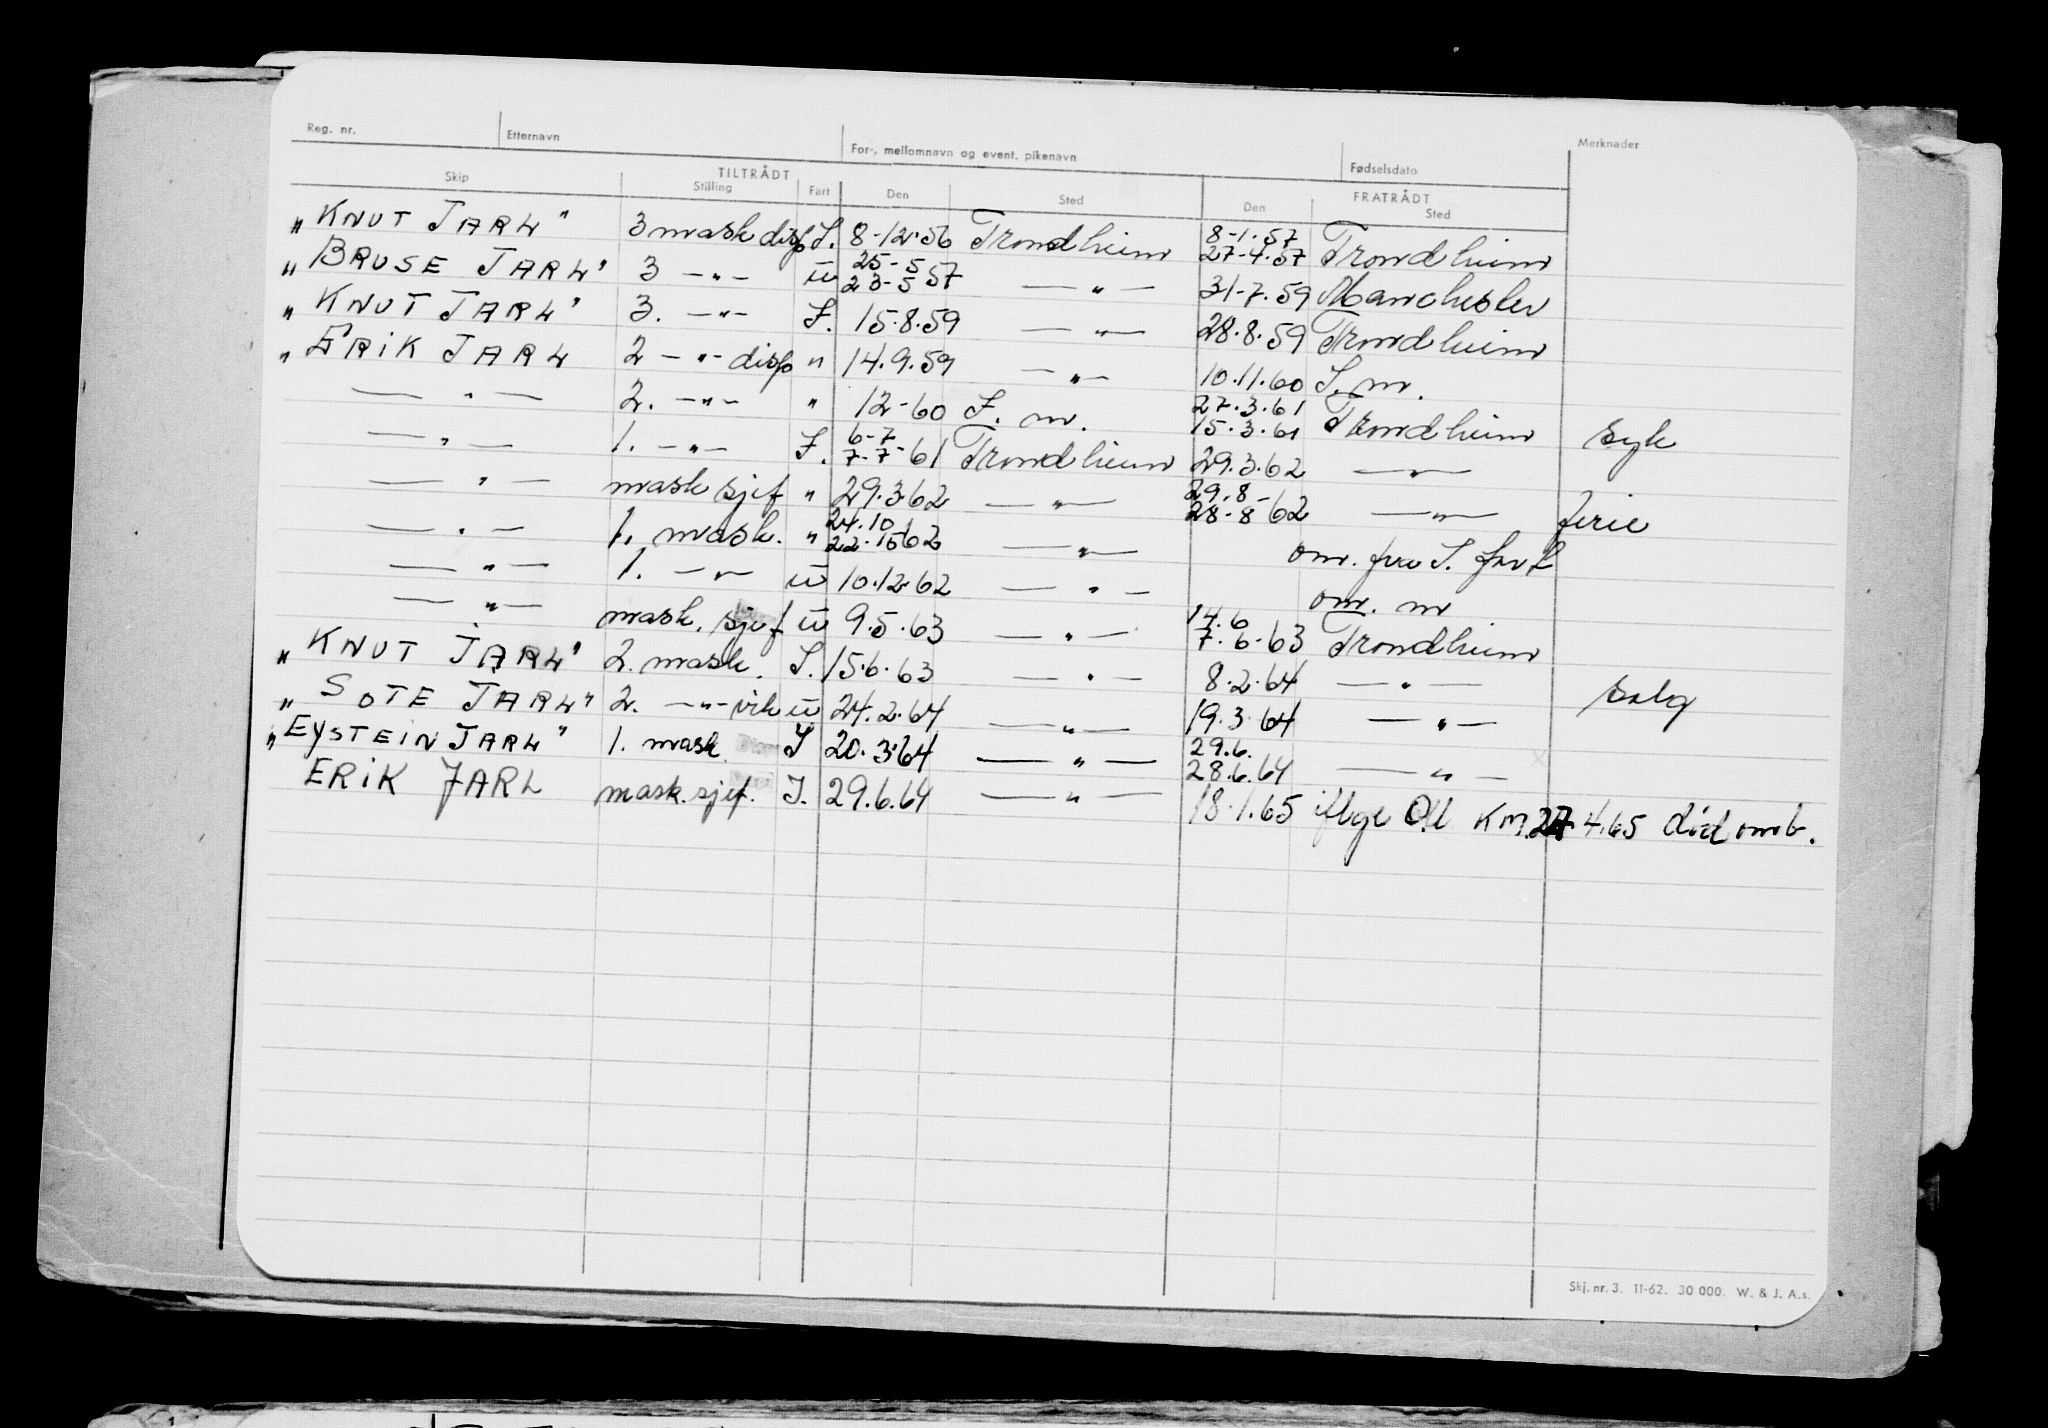 Reg. nr. Etternavn For-, mellomnavn og event. pikenavn Fødselsdato Merknader
TILTRÅDT FRATRÅDT
Skip Stilling Fart Den Sted Den Sted
"KNUT JARL" 3 mask disp I. 8-12-56 Trondheim 8-1-57 27-4-57 Trondheim
"BRUSE JARL" 3 -"- u 25-5 23-5 57 -"- 31-7-59 Manchester
"KNUT JARL" 3. -"- I. 15.8.59 -"- 28.8.59 Trondheim
"ERIK JARL 2 -"- disp " 14.9.59 -"- 10.11.60 I. m.
-"- 2. -"- " 12-60 I. m. 27.3.61 15.3.61 Trondheim syk
-"- 1. -"- I. 6-7 7-7-61 Trondheim 29.3.62 -"-
-"- mask sjef " 29.3.62 -"- 29.8- 28-8-62 -"- ferie
-"- 1. mask. " 24.10 22.10 62 -"- om. fra I. fart
-"- 1. -"- u 10.12.62 -"- om. m
-"- mask. sjef u 9.5.63 -"- 14.6 7.6-63 Trondheim
"KNUT JARL" 2. mask. I. 15.6.63 -"- 8.2.64 -"- salg
"SOTE JARL" 2. -"- vik u 24.2.64 -"- 19.3.64 -"-
"EYSTEIN JARL" 1. mask I 20.3.64 -"- 29.6. 28.6.64 -"-
ERIK JARL mask.sjef. I. 29.6.64 -"- 18.1.65 iflge KM. 27.4.65 død omb.
Skj. nr. 3. 11-62. 30 000. W. & J. A.s.